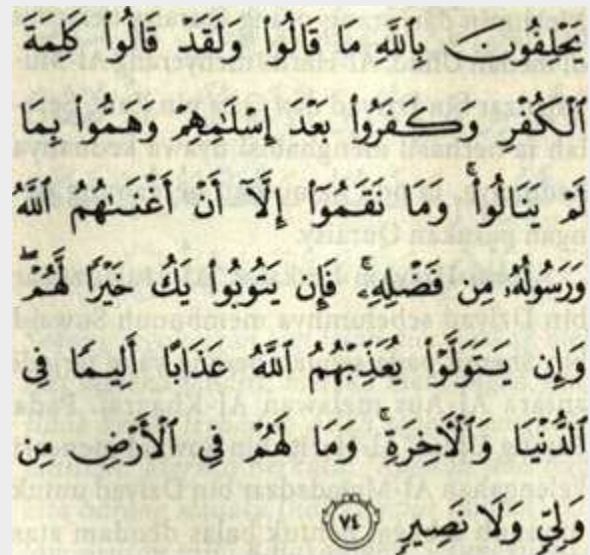 يَحْلِفُونَ بِٱللَّهِ مَا قَالُوا۟ وَلَقَدْ قَالُوا۟ كَلِمَةَ
ٱلْكُفْرِ وَكَفَرُوا۟ بَعْدَ إِسْلَٰمِهِمْ وَهَمُّوا۟ بِمَا
لَمْ يَنَالُوا۟ ۚ وَمَا نَقَمُوٓا۟ إِلَّآ أَنْ أَغْنَىٰهُمُ ٱللَّهُ
وَرَسُولُهُۥ مِن فَضْلِهِۦ ۚ فَإِن يَتُوبُوا۟ يَكُ خَيْرًا لَّهُمْ ۖ
وَإِن يَتَوَلَّوْا۟ يُعَذِّبْهُمُ ٱللَّهُ عَذَابًا أَلِيمًا فِى
ٱلدُّنْيَا وَٱلْءَاخِرَةِ ۚ وَمَا لَهُمْ فِى ٱلْأَرْضِ مِن
وَلِىٍّ وَلَا نَصِيرٍ ٧٤